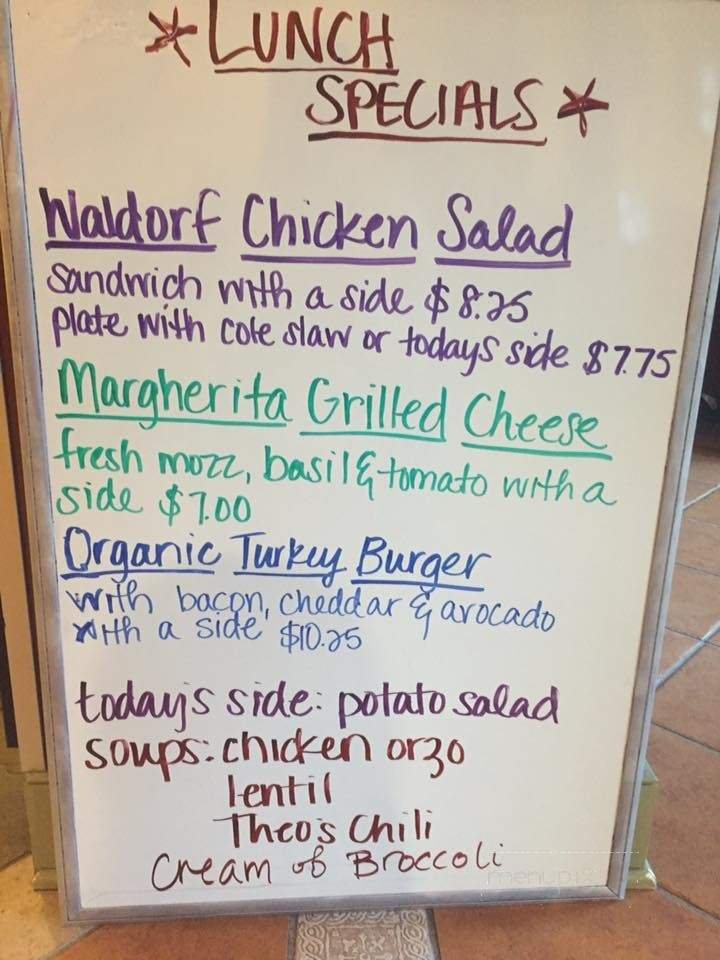 * LUNCH
SPECIALS *
Waldorf Chicken Salad
sandwich with a side $8.25
plate with cole slaw or todays side $7.75
Margherita Grilled Cheese
fresh mozz, basil & tomato with a
side $7.00
Organic Turkey Burger
with bacon, cheddar & avocado
with a side $10.25
today's side: potato salad
soups: chicken orzo
lentil
Theo's Chili
Cream of Broccoli
menupix